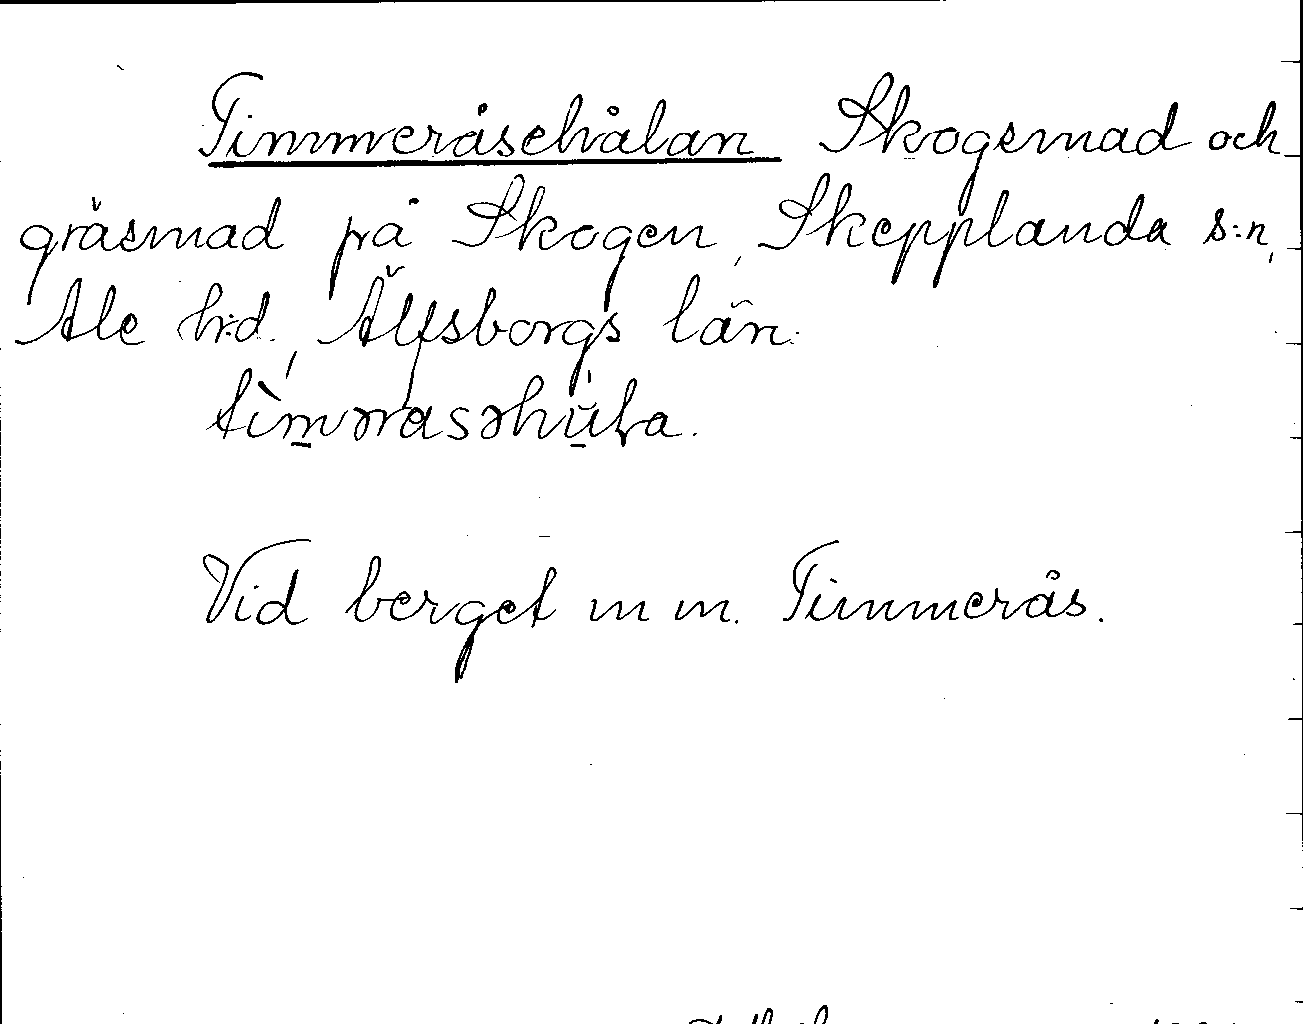 Timmeråsehålan Skogsmad och
gräsmad på Skogen, Skepplanda s:n,
Ale h:d., Älfsborgs län.
Vid berget m m. Timmerås.